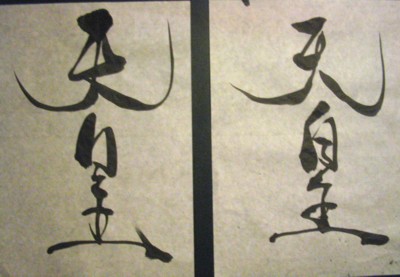 天皇
天皇